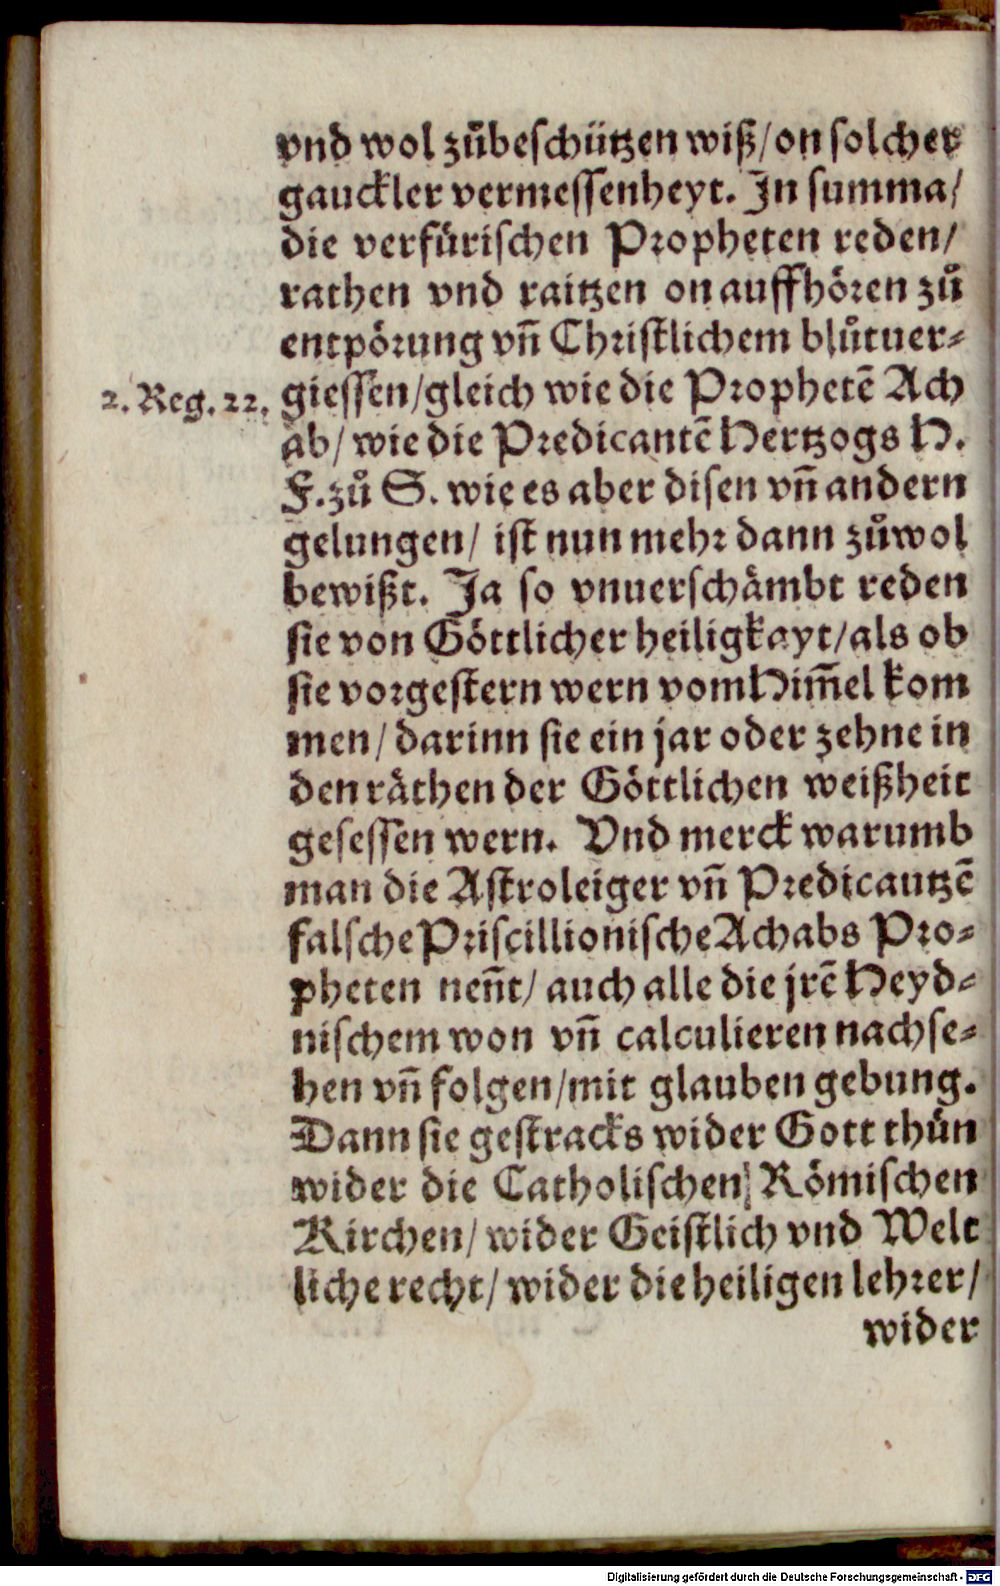 vnd wol zůbeschützen wiß/on solcher
gauckler vermessenheyt. In summa/
die verfürischen Propheten reden/
rathen vnd raitzen on auffhören zů
entpörung vn̄ Christlichem blůtuer⸗
2. Reg. 22. giessen/gleich wie die Prophetē Ach
ab/ wie die Predicantē Hertzogs H.
F. zů S. wie es aber disen vn̄ andern
gelungen/ ist nun mehr dann zůwol
bewißt. Ja so vnuerschämbt reden
sie von Göttlicher heiligkayt/als ob
sie vorgestern wern vom Him̄el kom
men/ darinn sie ein jar oder zehne in
den räthen der Göttlichen weißheit
gesessen wern. Vnd merck warumb
man die Astroleiger vn̄ Predicautzē
falsche Priscillionische Achabs Pro⸗
pheten nen̄t/ auch alle die jrē Heyd⸗
nischem won vn̄ calculieren nachse⸗
hen vn̄ folgen/mit glauben gebung.
Dann sie gestracks wider Gott thůn
wider die Catholischen/ Römischen
Kirchen/ wider Geistlich vnd Welt
liche recht/ wider die heiligen lehrer/
wider
Digitalisierung gefördert durch die Deutsche Forschungsgemeinschaft - DFG